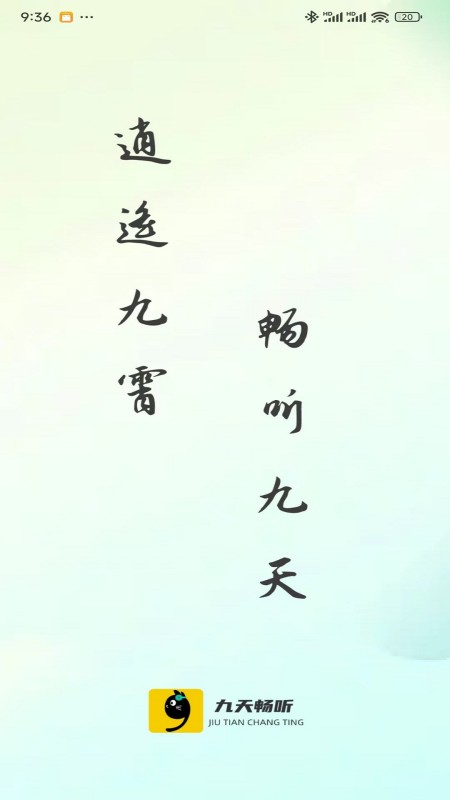 9:36
HD
HD
20
逍遥九霄
畅听九天
九天畅听
JIU TIAN CHANG TING